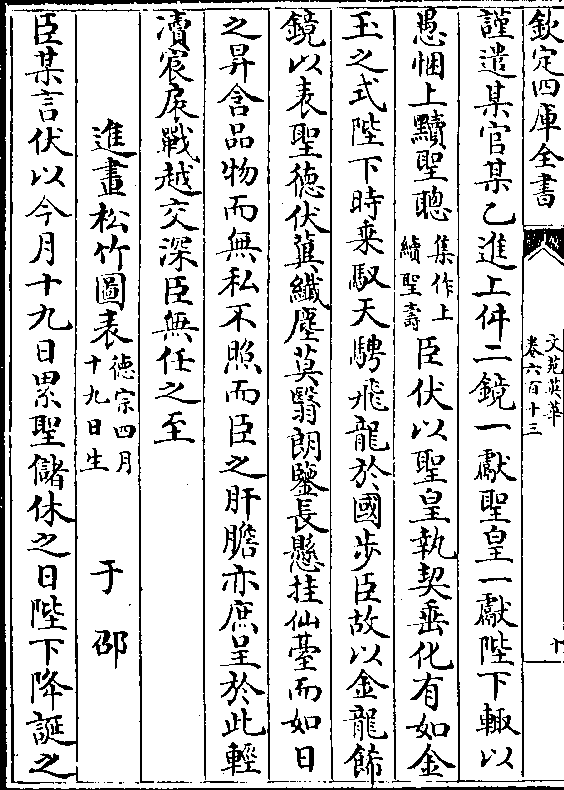 欽定四庫全書
文苑英華
卷六百十三
十
謹遣某官某乙進上件二鏡一獻聖皇一獻陛下輙以
愚悃上黷聖聰集作上續聖壽臣伏以聖皇執契垂化有如金
玉之式陛下時乗馭天騁飛龍於國步臣故以金龍飾
鏡以表聖徳伏兾纖塵莫翳朗鑒長懸挂仙臺而如日
之昇含品物而無私不照而臣之肝膽亦庶呈於此輕
瀆宸扆戰越交深臣無任之至
進畫松竹圖表徳宗四月十九日生 于邵
臣某言伏以今月十九日累聖儲休之日陛下降誕之